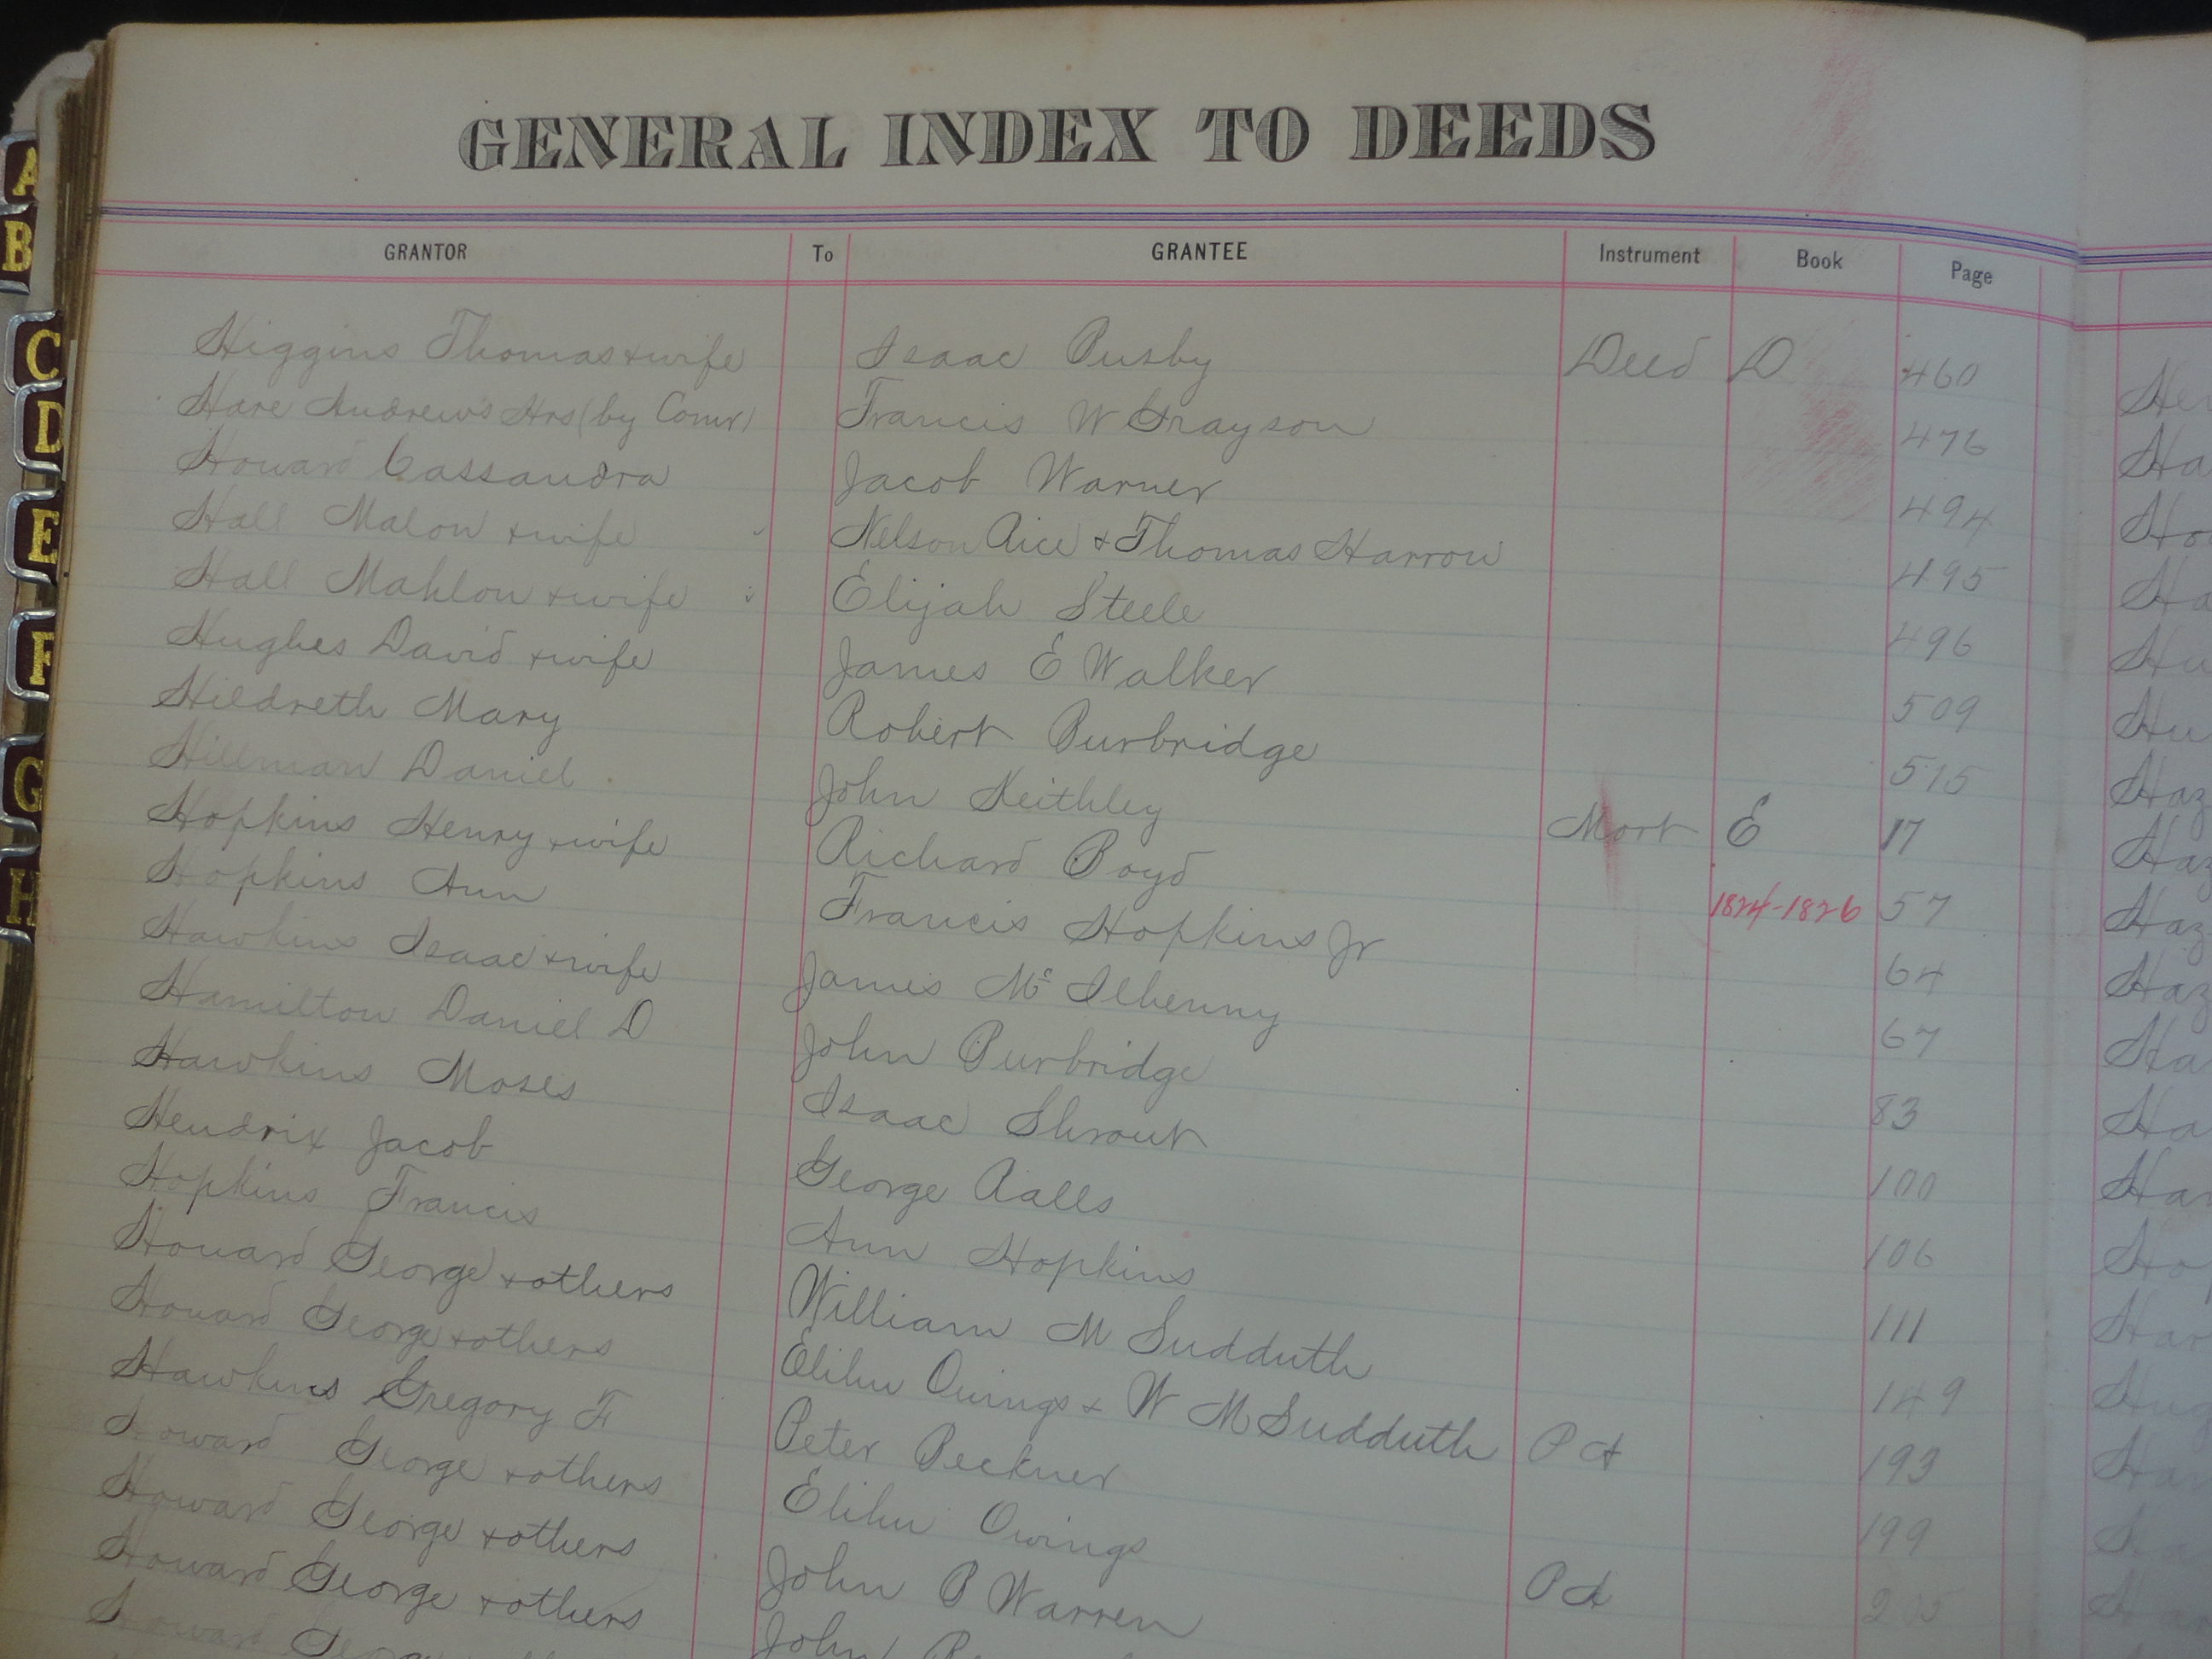 A
B
C
D
E
F
G
H
GENERAL INDEX TO DEEDS
GRANTOR To GRANTEE Instrument Book Page
Higgins Thomas & wife Isaac Pusby Deed D 460
Hare Andrew's Hrs (by Comr) Francis W Grayson 476
Howard Cassandra Jacob Warner 494
Hall Malon & wife Nelson Rice & Thomas Harrow 495
Hall Mahlon & wife Elijah Steele 496
Hughes David & wife James E Walker 509
Hildreth Mary Robert Burbridge 515
Hillman Daniel John Keithley Mort E 17
Hopkins Henry & wife Richard Boyd 1824-1826 57
Hopkins Ann Francis Hopkins Jr 64
Hawkins Isaac & wife James McIlhenny 67
Hamilton Daniel D John Burbridge 83
Hawkins Moses Isaac Shrout 100
Hendrix Jacob George Ralls 106
Hopkins Francis Ann Hopkins 111
Howard George & others William M Sudduth 149
Howard George & others Elihu Owings & W M Sudduth P A 193
Hawkins Gregory F Peter Beckner 199
Howard George & others Elihu Owings P A 205
Howard George & others John P Warren
Howard George & others John
Howard George